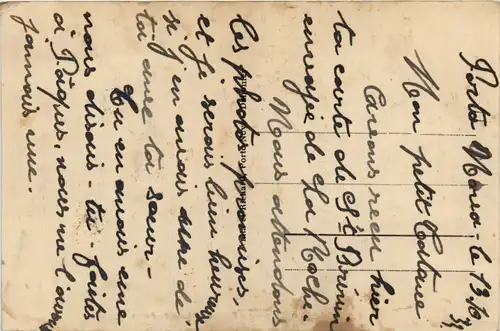 Porto Maro - le 13/6
37
Mon petit
Avons reçu hier
ta carte de St Brieuc
envoyé de La Roch.
Nous attendons
les photos promises,
et je serais bien heureux
si j'en avais une de
toi avec ta sœur -
Tu en avais une
nous disais-tu - faites
à Pâques, nous ne l'avons
jamais eue.